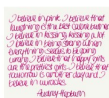 I believe in pink. I believe that
laughing is the best calorie burner.
I believe in kissing, kissing a lot.
I believe in being strong when
everything seems to be going
wrong. I believe that happy girls
are the prettiest girls. I believe that
tomorrow is another day and I
believe in miracles.
Audrey Hepburn